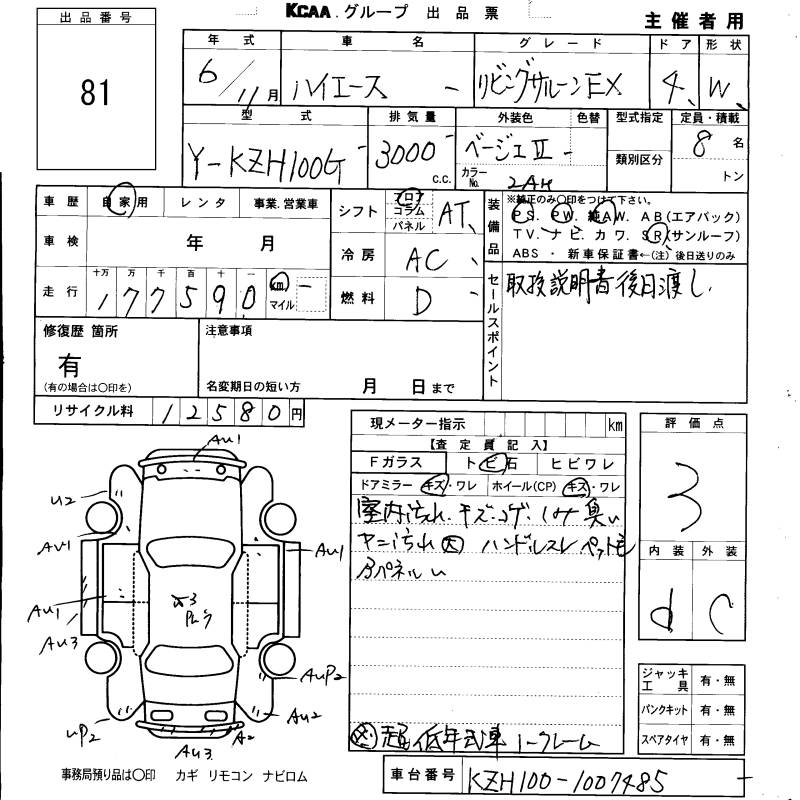 KCAA グループ 出品票
主催者用
出品番号
81
年式 車名 グレード ドア 形状
6/11月 ハイエース リビングサルーンEX 4 W
型式 排気量 外装色 色替 型式指定 定員・積載
Y-KZH100G 3000 c.c. ベージュII カラーNo. 2AH 類別区分 8名 トン
車歴 自家用 レンタ 事業.営業車
シフト フロア コラム パネル AT
装備品
※純正のみ〇印をつけて下さい。
PS. PW. 純AW. AB(エアバック)
TV. ナビ. カワ. SR(サンルーフ)
ABS ・ 新車保証書←(注)後日送りのみ
車検 年 月
冷房 AC
走行 十万 万 千 百 十 一
177590 km マイル
燃料 D
セールスポイント
取扱説明書後日渡し.
修復歴 箇所
有
(有の場合は〇印を)
注意事項
名変期日の短い方 月 日まで
リサイクル料 12580円
現メーター指示 km
【査定員記入】
Fガラス トビ石 ヒビワレ
ドアミラー キズ・ワレ ホイール(CP) キズ・ワレ
室内汚れ. キズ. コゲ. シミ 臭い
ヤニ汚れ大 ハンドルスレ ペット毛
評価点
3
内装 外装
d C
AU1
U2
AU1
AU1
AU1
AU3
AUP2
AU2
UP2
A2
AU3
ジャッキ工具 有・無
パンクキット 有・無
スペアタイヤ 有・無
超低年式車 ノークレーム
事務局預り品は〇印 カギ リモコン ナビロム
車台番号 KZH100-1007485